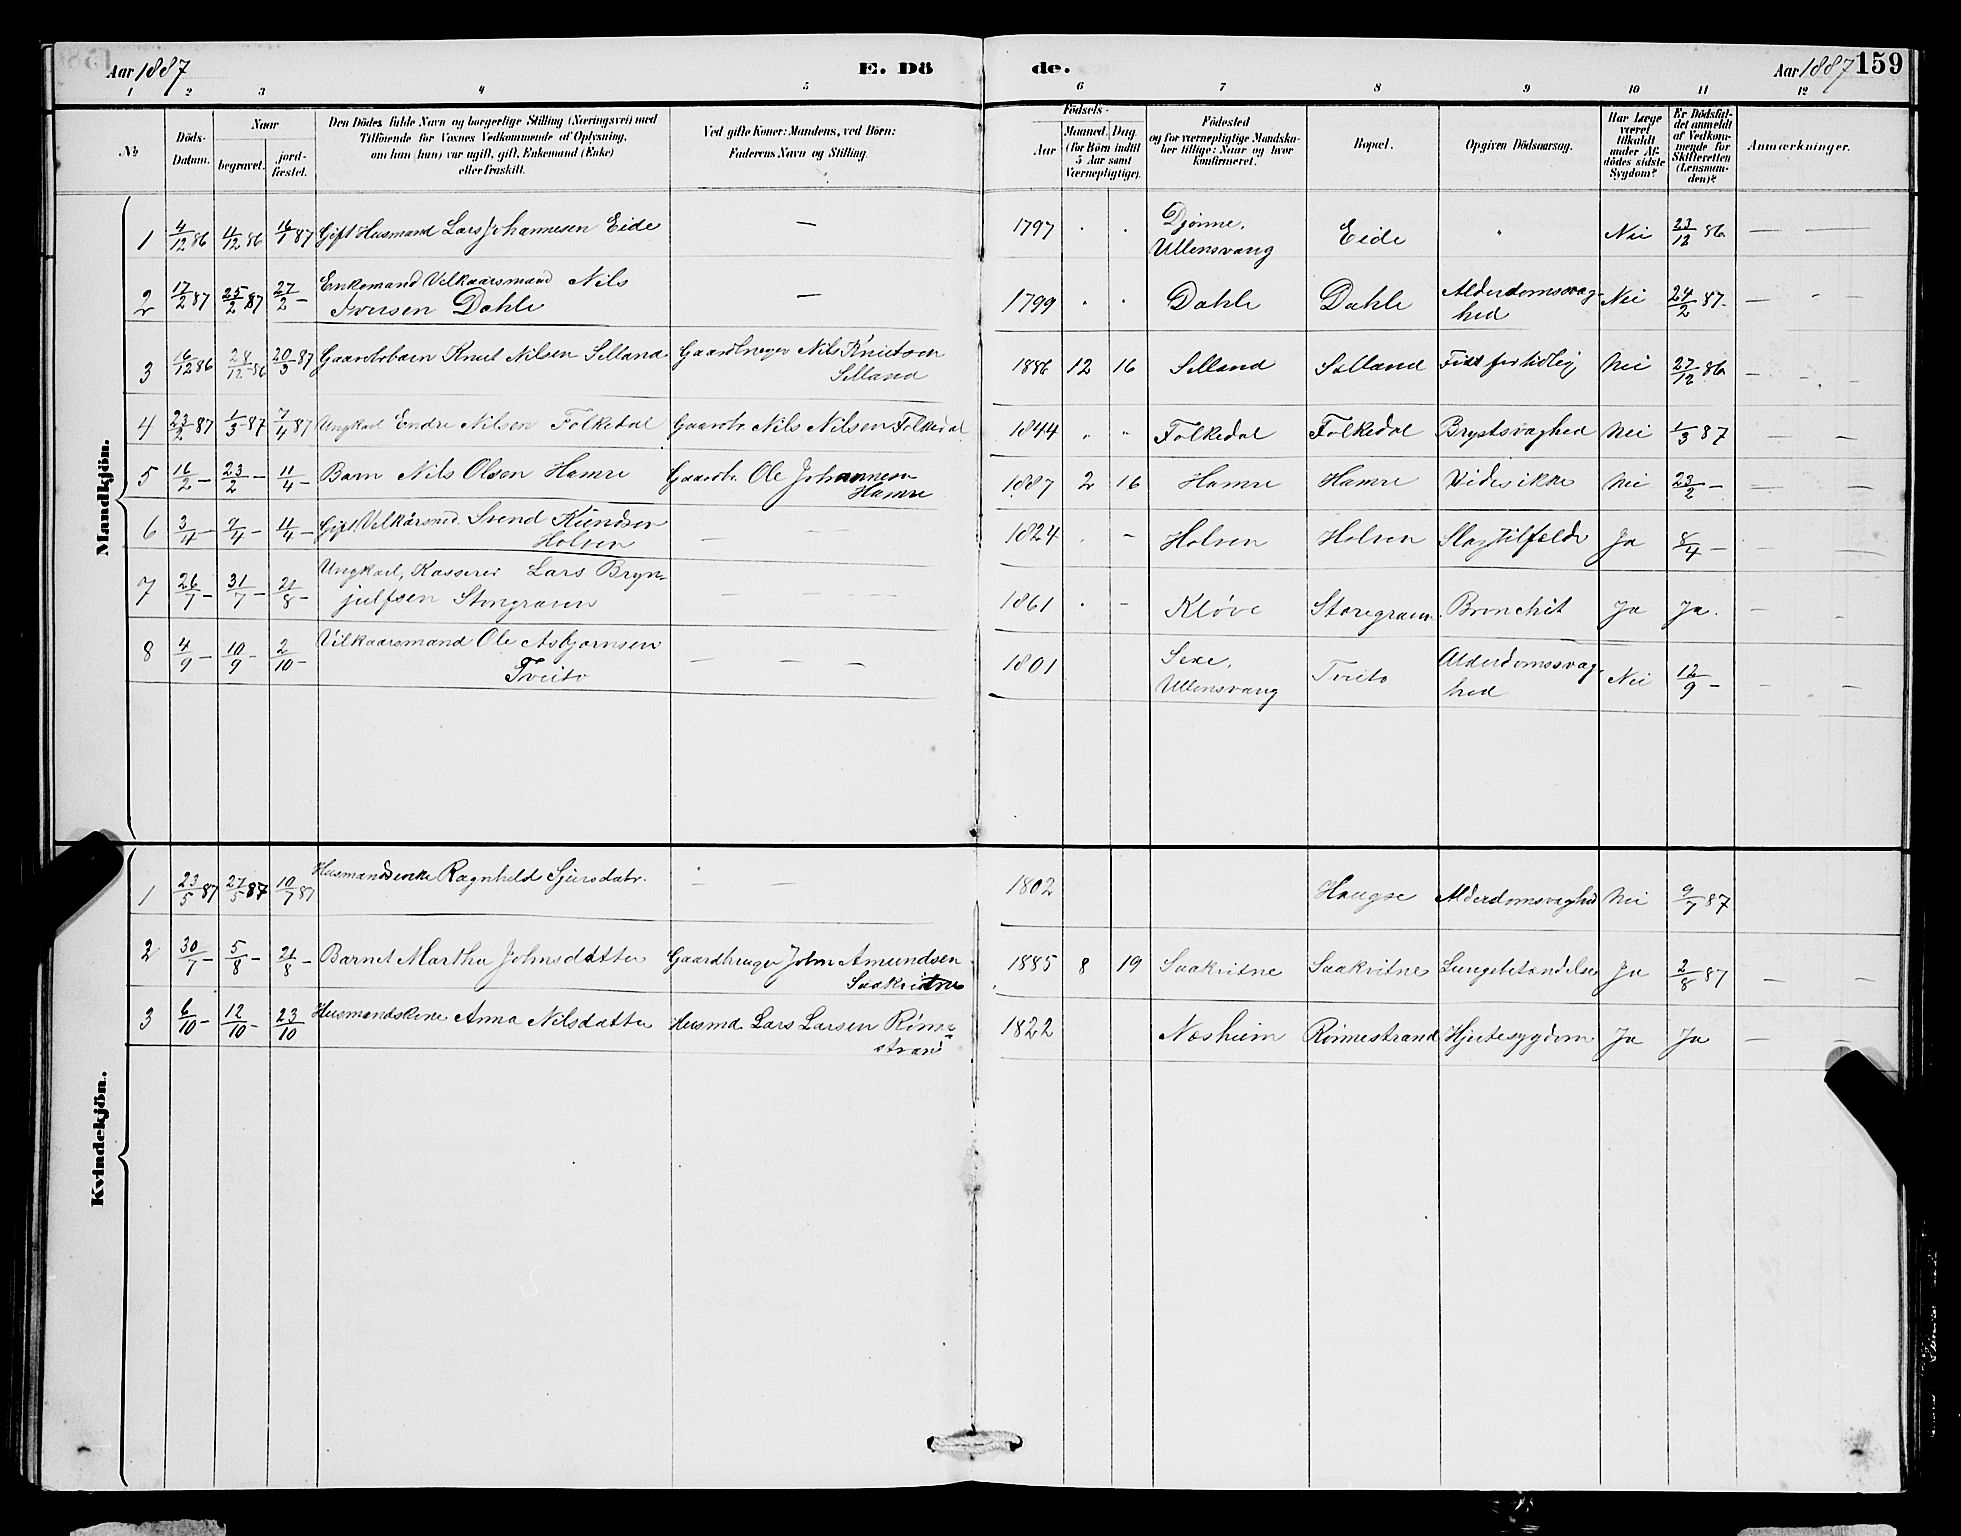 Aar 1887 E. Dö de. Aar 1887 159
1 2 3 4 5 6 7 8 9 10 11 12
No.
Döds-
Datum.
Naar
begravet.
jord-
fæstet.
Den Dödes fulde Navn og borgerlige Stilling (Næringsvei) med
Tilföiende for Voxnes Vedkommende af Oplysning,
om han (hun) var ugift, gift, Enkemand (Enke)
eller fraskilt.
Ved gifte Koner: Mandens, ved Börn:
Faderens Navn og Stilling.
Födsels-
Aar
Maaned. Dag.
(for Börn indtil
5 Aar samt
Værnepligtige).
Födested
og for værnepligtige Mandska-
ber tillige: Naar og hvor
konfirmeret.
Bopæl.
Opgiven Dödsaarsag.
Har Læge
været
tilkaldt
under Af-
dödes sidste
Sygdom?
Er Dödsfal-
det anmeldt
af Vedkom-
mende for
Skifteretten
(Lensman-
den)?
Anmærkninger.
Mandkjön.
1 4/12 86 4/12 86 16/1 87 Gift Husmand Lars Johannesen Eide — 1797 Djönne, Ullensvang Eide Nei 23/12 86 — —
2 17/2 87 25/2 87 27/2 – Enkemand Velkaarsmand Nils
Iversen Dahle — 1799 Dahle Dahle Alderdomssvag-
hed Nei 24/2 87 –
3 16/12 86 28/12 86 20/3 87 Gaardbrbarn Knut Nilsen Selland Gaardbruger Nils Knutson
Selland 1886 12 16 Selland Selland Født for tidlig Nei 27/12 86
4 23/2 87 1/3 87 7/4 87 Ungkarl Endre Nilsen Folkedal Gaardbr. Nils Nilsen Folkedal 1844 Folkedal Folkedal Brystsvaghed Nei 1/3 87
5 16/2 – 23/2 – 11/4 – Barn Nils Olsen Hamre Gaardbr. Ole Johannesen
Hamre 1887 2 16 Hamre Hamre Vides ikke Nei 23/2 –
6 3/4 – 9/4 – 11/4 – Gift Velkårsmd. Svend Knudsen
Holven — 1824 Holven Holven Slagtilfælde Ja 8/4 –
7 26/7 – 31/7 – 21/8 – Ungkarl, Kasserer Lars Bryn-
julfsen Storegraven — 1861 Kløve Storegraven Bronchit Ja Ja.
8 4/9 – 10/9 – 2/10 – Vilkaarsmand Ole Asbjørnsen
Tveito — 1801 Sexe,
Ullensvang Tveito Alderdomssvag-
hed Nei 12/9 –
Kvindekjön.
1 23/5 87 27/5 87 10/7 87 Husmandsenke Ragnhild Sjursdatr. — 1802 Haugse Alderdomsvaghed Nei 9/7 87
2 30/7 – 5/8 – 21/8 – Barnet Martha Johnsdatter Gaardbruger John Amundsen
Saakvitne 1885 8 19 Saakvitne Saakvitne Lungebetændelse Ja 2/8 87
3 6/10 – 12/10 – 23/10 Husmandskone Anna Nilsdatter Husmd. Lars Larsen Rönne-
strand 1822 Næsheim Rönnestrand Hjertesygdom Ja Ja